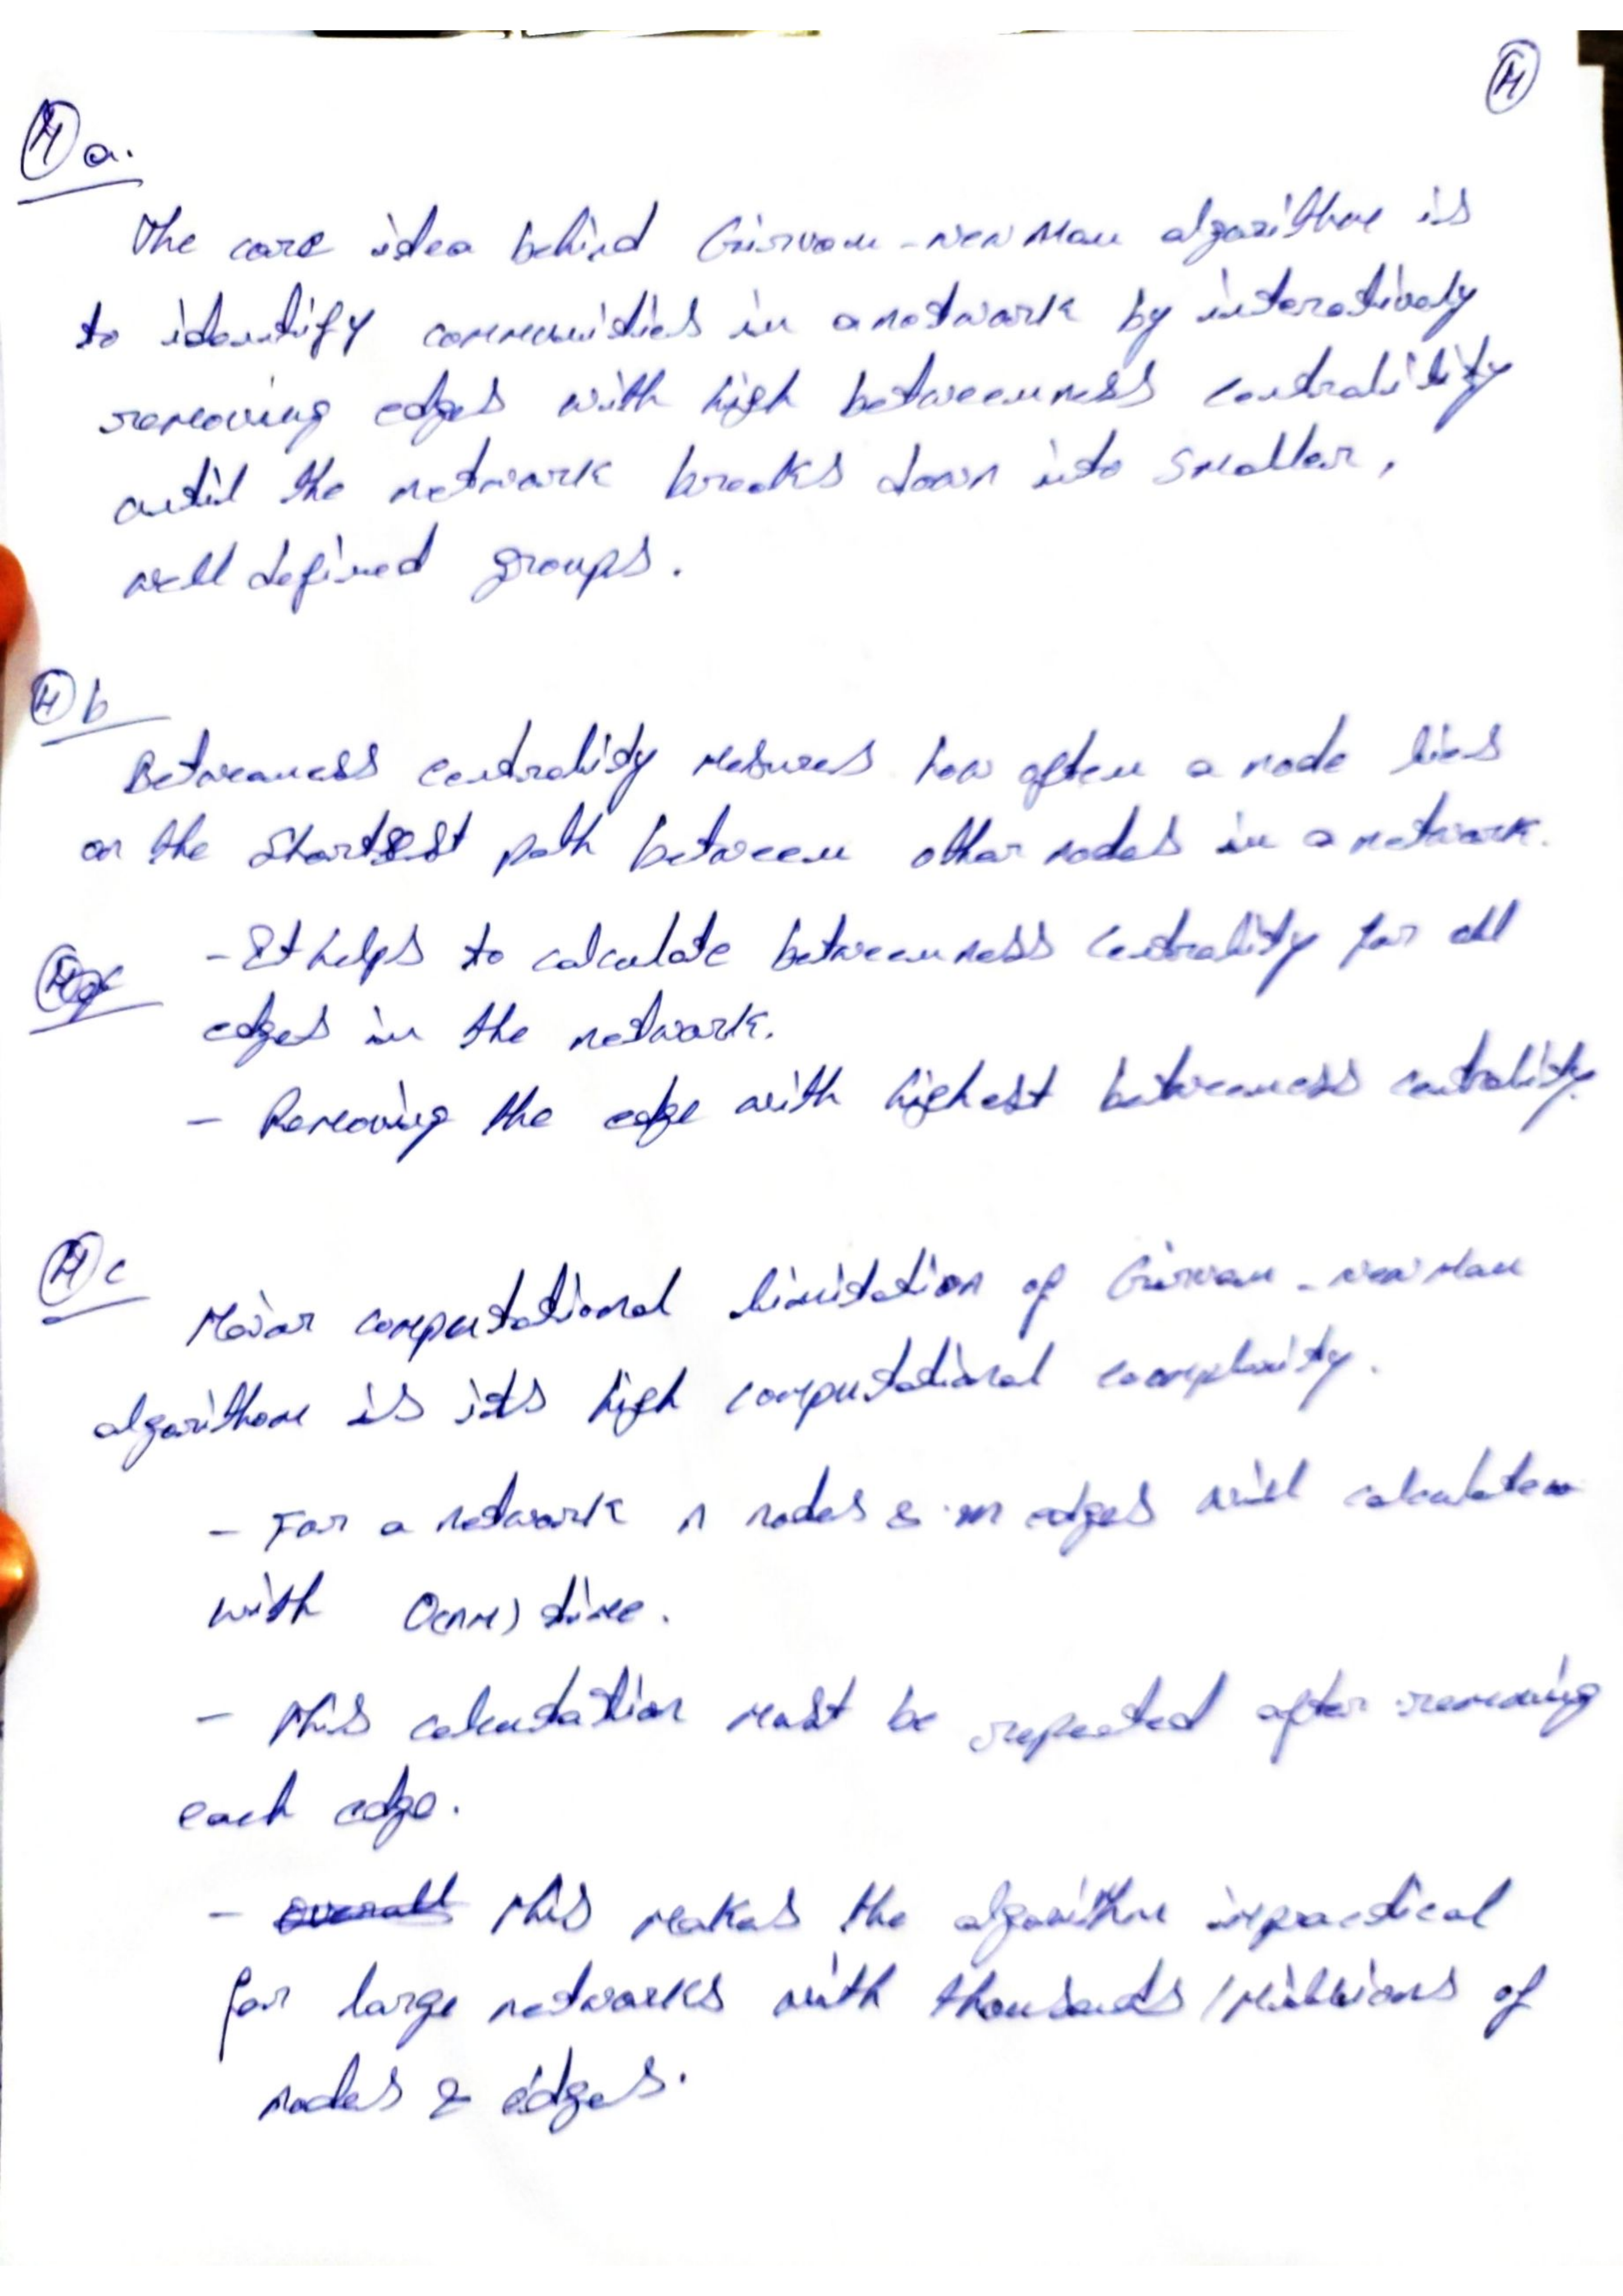 4
4 a.
The core idea behind Girvan-newman algorithm is
to identify communities in a network by interatively
removing edges with high betweenness centrality
until the network breaks down into smaller,
well defined groups.
4 b
Betweeness centrality mesures how often a node lies
on the shortest path between other nodes in a network.
- It helps to calculate betweenness centrality for all
edges in the network.
- Removing the edge with highest betweeness centrality.
4 c
Major computational limitation of Girvan-newman
algorithm is its high computational complexity.
- For a network n nodes & m edges will calculate
with O(nm) time.
- This calculation must be repeated after removing
each edge.
- overall This makes the algorithm impractical
for large networks with thousands / millions of
nodes & edges.